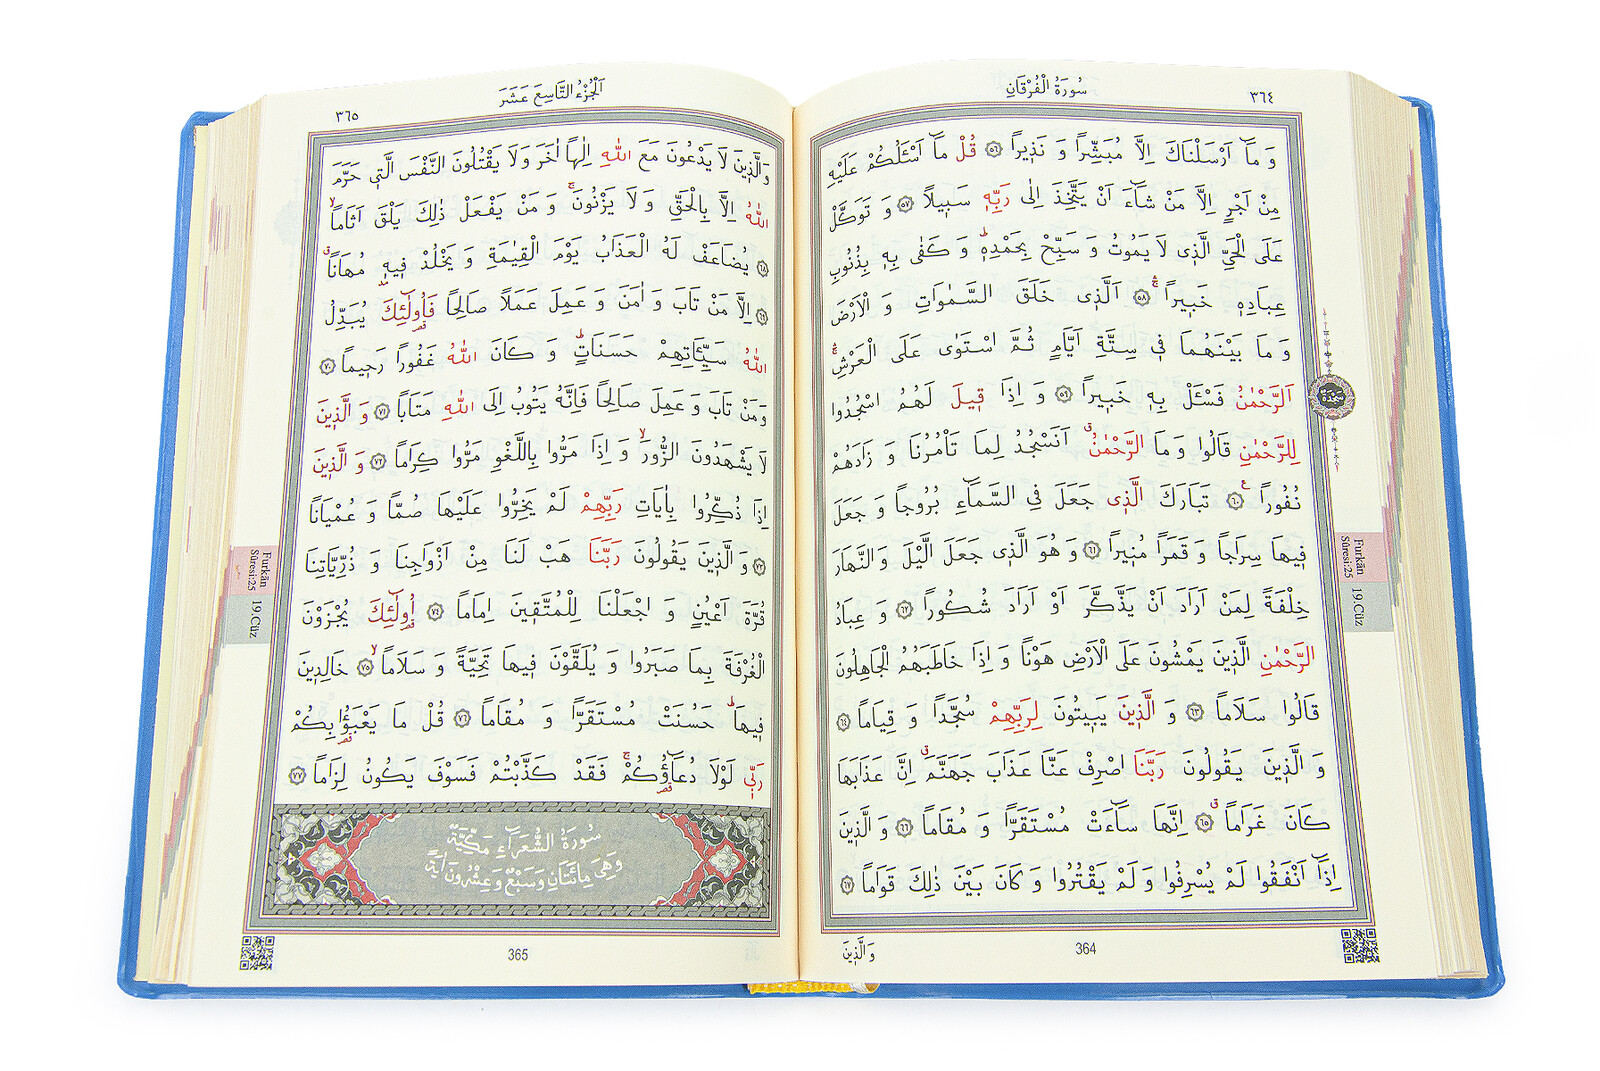 سُورَةُ الْفُرْقَانِ
٣٦٤
وَ مَٓا اَرْسَلْنَاكَ اِلَّا مُبَشِّرًا وَ نَذِيرًا ﴿٥٦﴾ قُلْ مَٓا اَسْـَٔلُكُمْ عَلَيْهِ
مِنْ اَجْرٍ اِلَّا مَنْ شَٓاءَ اَنْ يَتَّخِذَ اِلٰى رَبِّهٖ سَبِيلًا ﴿٥٧﴾ وَ تَوَكَّلْ
عَلَى الْحَيِّ الَّذٖى لَا يَمُوتُ وَ سَبِّحْ بِحَمْدِهٖۜ وَ كَفٰى بِهٖ بِذُنُوبِ
عِبَادِهٖ خَبٖيرًاۚ ﴿٥٨﴾ اَلَّذٖى خَلَقَ السَّمٰوَاتِ وَ الْاَرْضَ
وَ مَا بَيْنَهُمَا فٖى سِتَّةِ اَيَّامٍ ثُمَّ اسْتَوٰى عَلَى الْعَرْشِۚ
اَلرَّحْمٰنُ فَسْـَٔلْ بِهٖ خَبٖيرًا ﴿٥٩﴾ وَ اِذَا قٖيلَ لَهُمُ اسْجُدُوا
لِلرَّحْمٰنِ قَالُوا وَ مَا الرَّحْمٰنُۗ اَنَسْجُدُ لِمَا تَأْمُرُنَا وَ زَادَهُمْ
نُفُورًا ﴿٦٠﴾ تَبَارَكَ الَّذٖى جَعَلَ فِى السَّمَٓاءِ بُرُوجًا وَ جَعَلَ
فٖيهَا سِرَاجًا وَ قَمَرًا مُنٖيرًا ﴿٦١﴾ وَ هُوَ الَّذٖى جَعَلَ الَّيْلَ وَ النَّهَارَ
خِلْفَةً لِمَنْ اَرَادَ اَنْ يَذَّكَّرَ اَوْ اَرَادَ شُكُورًا ﴿٦٢﴾ وَ عِبَادُ
الرَّحْمٰنِ الَّذٖينَ يَمْشُونَ عَلَى الْاَرْضِ هَوْنًا وَ اِذَا خَاطَبَهُمُ الْجَاهِلُونَ
قَالُوا سَلَامًا ﴿٦٣﴾ وَ الَّذٖينَ يَبٖيتُونَ لِرَبِّهِمْ سُجَّدًا وَ قِيَامًا ﴿٦٤﴾
وَ الَّذٖينَ يَقُولُونَ رَبَّنَا اصْرِفْ عَنَّا عَذَابَ جَهَنَّمَۗ اِنَّ عَذَابَهَا
كَانَ غَرَامًاۗ ﴿٦٥﴾ اِنَّهَا سَٓاءَتْ مُسْتَقَرًّا وَ مُقَامًا ﴿٦٦﴾ وَ الَّذٖينَ
اِذَٓا اَنْفَقُوا لَمْ يُسْرِفُوا وَ لَمْ يَقْتُرُوا وَ كَانَ بَيْنَ ذٰلِكَ قَوَامًا ﴿٦٧﴾
سجده
Furkân
Sûresi:25
19.Cüz
وَ الَّذٖينَ
364
اَلْجُزْءُ التَّاسِعَ عَشَرَ
٣٦٥
وَ الَّذٖينَ لَا يَدْعُونَ مَعَ اللّٰهِ اِلٰهًا اٰخَرَ وَ لَا يَقْتُلُونَ النَّفْسَ الَّتٖى حَرَّمَ
اللّٰهُ اِلَّا بِالْحَقِّ وَ لَا يَزْنُونَۚ وَ مَنْ يَفْعَلْ ذٰلِكَ يَلْقَ اَثَامًاۙ
﴿٦٨﴾ يُضَاعَفْ لَهُ الْعَذَابُ يَوْمَ الْقِيٰمَةِ وَ يَخْلُدْ فٖيهٖ مُهَانًاۗ
﴿٦٩﴾ اِلَّا مَنْ تَابَ وَ اٰمَنَ وَ عَمِلَ عَمَلًا صَالِحًا فَاُولٰٓئِكَ يُبَدِّلُ
اللّٰهُ سَيِّـَٔاتِهِمْ حَسَنَاتٍۜ وَ كَانَ اللّٰهُ غَفُورًا رَحٖيمًا ﴿٧٠﴾
وَ مَنْ تَابَ وَ عَمِلَ صَالِحًا فَاِنَّهُ يَتُوبُ اِلَى اللّٰهِ مَتَابًا ﴿٧١﴾ وَ الَّذٖينَ
لَا يَشْهَدُونَ الزُّورَۙ وَ اِذَا مَرُّوا بِاللَّغْوِ مَرُّوا كِرَامًا ﴿٧٢﴾ وَ الَّذٖينَ
اِذَا ذُكِّرُوا بِاٰيَاتِ رَبِّهِمْ لَمْ يَخِرُّوا عَلَيْهَا صُمًّا وَ عُمْيَانًا
﴿٧٣﴾ وَ الَّذٖينَ يَقُولُونَ رَبَّنَا هَبْ لَنَا مِنْ اَزْوَاجِنَا وَ ذُرِّيَّاتِنَا
قُرَّةَ اَعْيُنٍ وَ اجْعَلْنَا لِلْمُتَّقٖينَ اِمَامًا ﴿٧٤﴾ اُولٰٓئِكَ يُجْزَوْنَ
الْغُرْفَةَ بِمَا صَبَرُوا وَ يُلَقَّوْنَ فٖيهَا تَحِيَّةً وَ سَلَامًاۙ ﴿٧٥﴾ خَالِدٖينَ
فٖيهَاۜ حَسُنَتْ مُسْتَقَرًّا وَ مُقَامًا ﴿٧٦﴾ قُلْ مَا يَعْبَؤُا بِكُمْ
رَبّٖى لَوْلَا دُعَٓاؤُ۬كُمْۚ فَقَدْ كَذَّبْتُمْ فَسَوْفَ يَكُونُ لِزَامًا ﴿٧٧﴾
سُورَةُ الشُّعَرَٓاءِ مَكِّيَّةٌ
وَهِىَ مِائَتَانِ وَسَبْعٌ وَعِشْرُونَ اٰيَةً
Furkân
Sûresi:25
19.Cüz
365